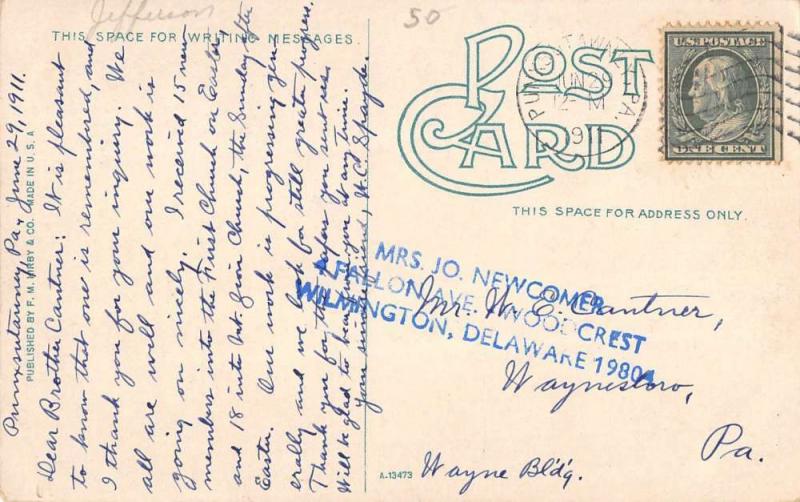 Jefferson
50
THIS SPACE FOR WRITING MESSAGES
POST CARD
PUNXSUTAWNEY, PA.
JUN 29
12- M
1911
U.S. POSTAGE
ONE CENT
THIS SPACE FOR ADDRESS ONLY.
Punxsutawney, Pa., June 29, 1911.
Dear Brother Cantner: It is pleasant
to know that one is remembered, and
I thank you for your inquiry. We
all are well and our work is
going on nicely. I received 15 new
members into the First Church on Easter
and 18 into Mt. Zion Church, the Sunday after
Easter. Our work is progressing gen-
erally and we look for still greater progress.
Thank you for the referat you sent us.
Will be glad to hear from you at any time.
Your sincere friend, H. C. Spayde.
PUBLISHED BY F. M. KIRBY & CO. MADE IN U.S.A
MRS. JO. NEWCOMER
4 FALLON AVE. WOODCREST
WILMINGTON, DELAWARE 19804
Mr. W. E. Cantner,
Waynesboro,
Pa.
Wayne Bldg.
A-13473